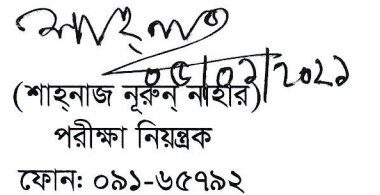 শাহ্‌নাজ
০৫/০৯/২০২১
(শাহ্‌নাজ নূরুন্ নাহার)
পরীক্ষা নিয়ন্ত্রক
ফোন: ০৯১-৬৫৭৯২